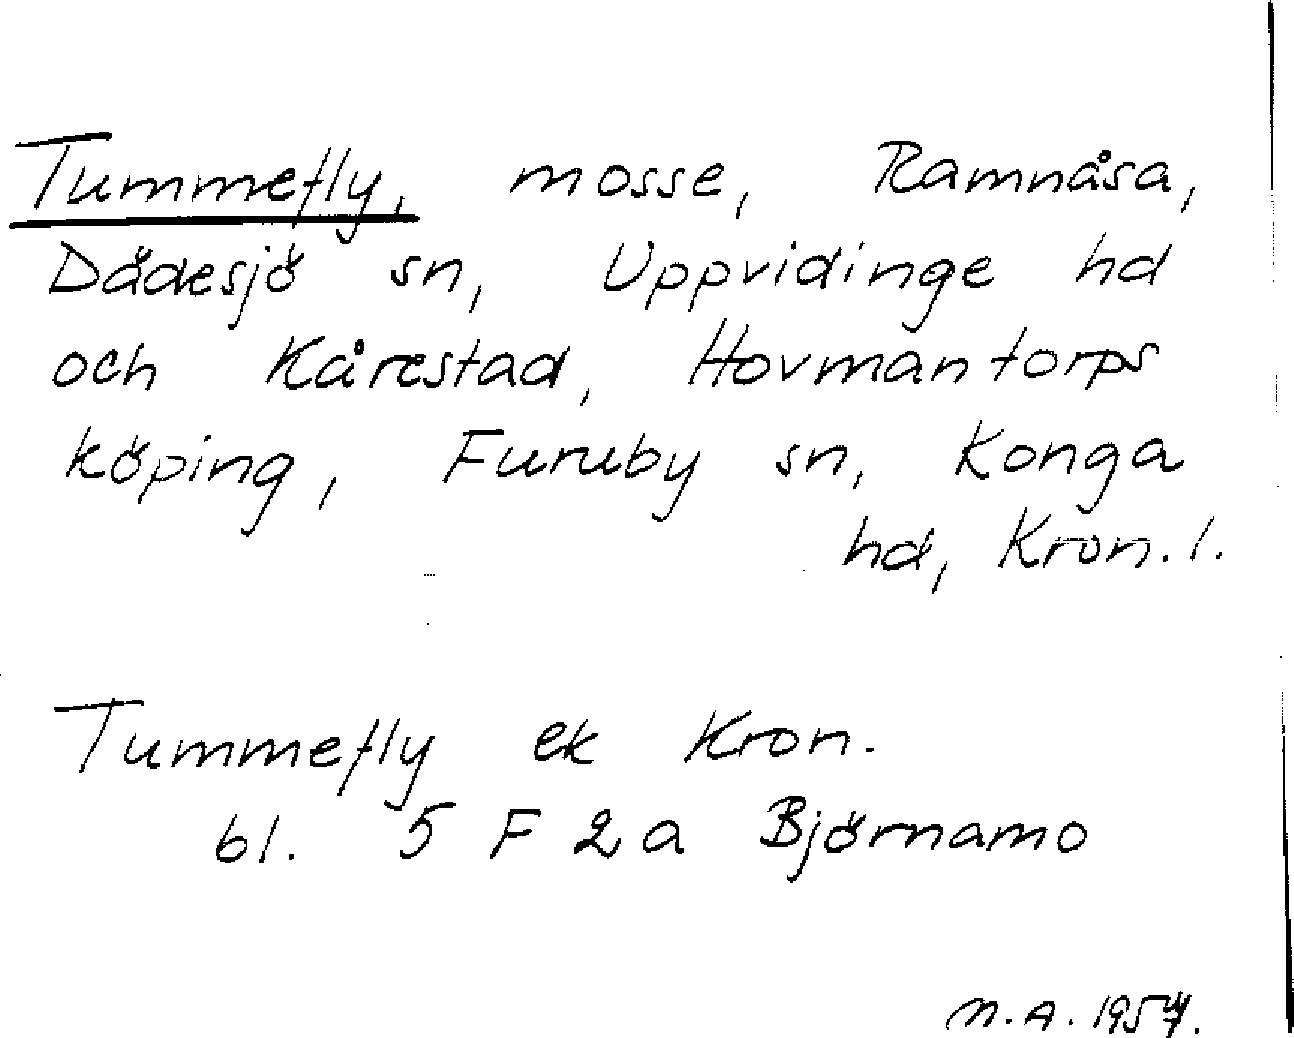 Tummefly, mosse, Ramnåsa,
Dädesjö sn, Uppvidinge hd
och Kårestad, Hovmantorps
köping, Furuby sn, Konga
hd, Kron. l.
Tummefly ek Kron.
bl. 5 F 2 a Björnamo
N. A.